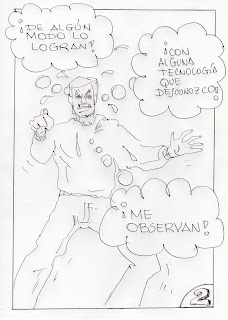 ¡DE ALGÚN
MODO LO
LOGRAN!
¡CON
ALGUNA
TECNOLOGÍA
QUE
DESCONOZCO!
¡ME
OBSERVAN!
2